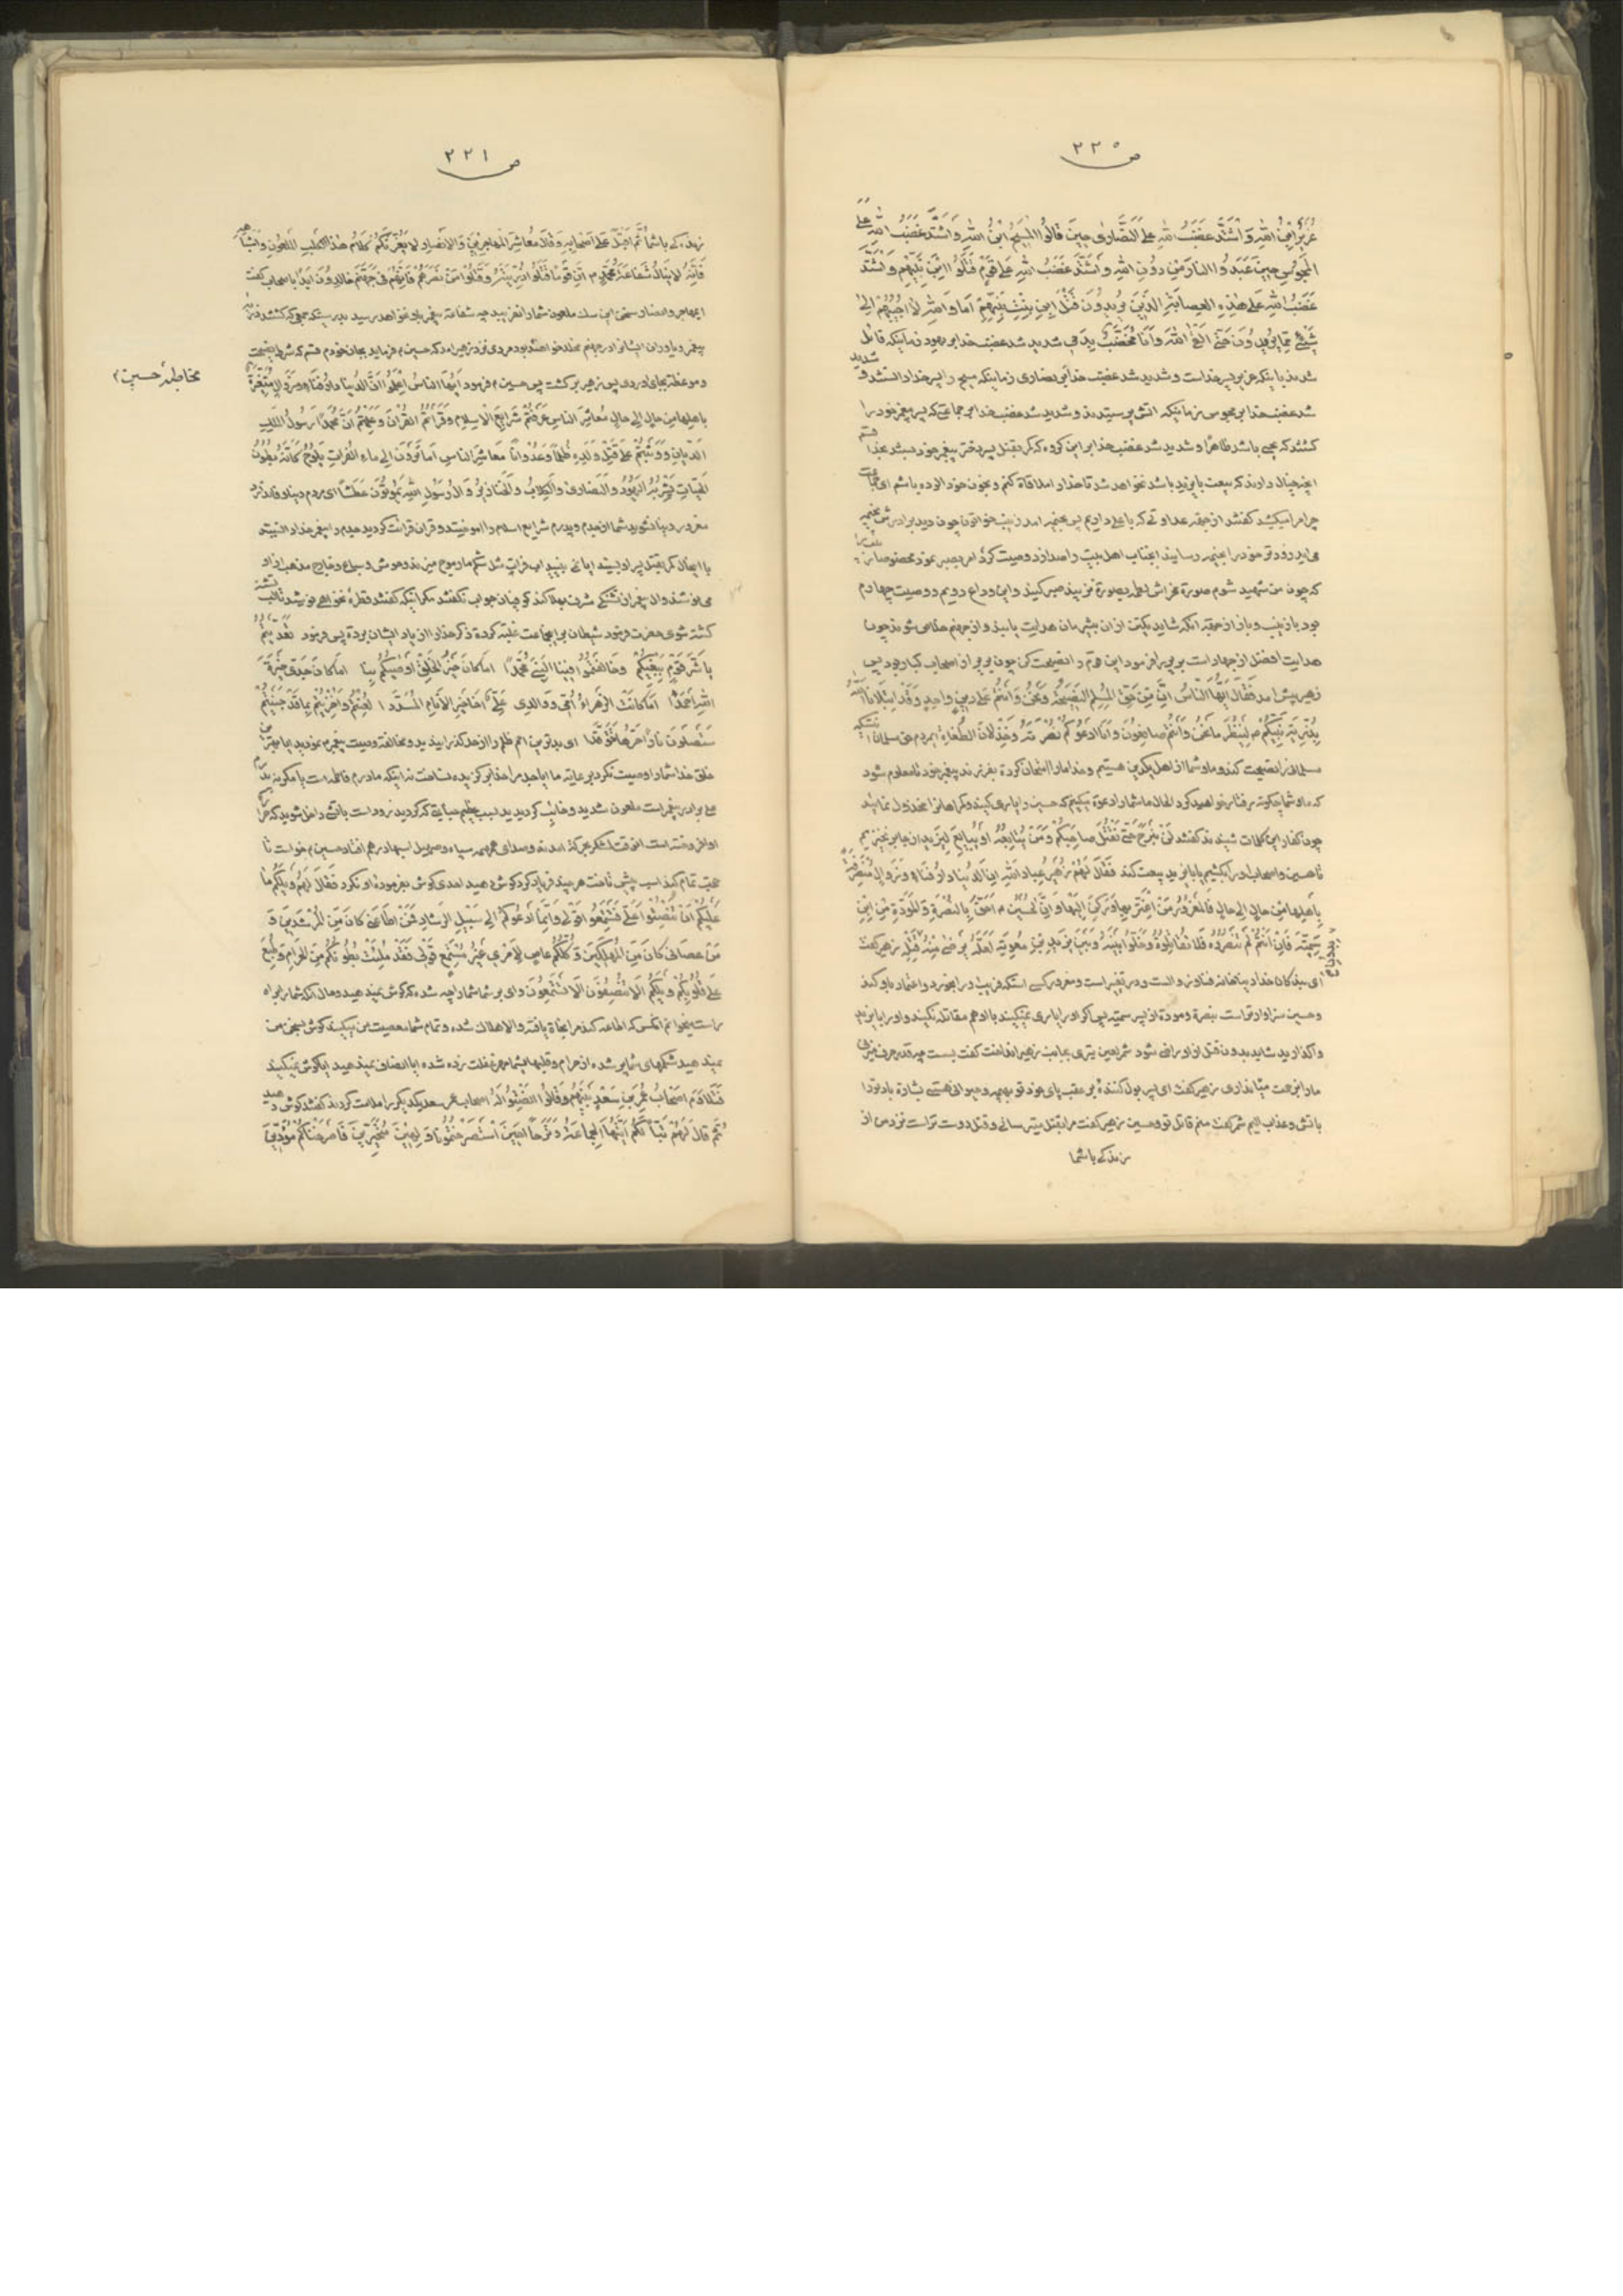 ص ۲۲۰
عُزَیْرٌ ابْنُ اللهِ وَ اشْتَدَّ غَضَبُ اللهِ عَلَی النَّصَاری حِینَ قالُوا الْمَسِیحُ ابْنُ اللهِ وَ اشْتَدَّ غَضَبُ اللهِ عَلَی
الْمَجُوسِ حِینَ عَبَدُوا النارَ مِنْ دُونِ اللهِ وَ اشْتَدَّ غَضَبُ اللهِ عَلَی قَوْمٍ قَتَلُوا ابْنَ نَبِیِّهِمْ وَ اشْتَدَّ
غَضَبُ اللهِ عَلَی هٰذِهِ العِصابَةِ الَّذِینَ یُرِیدُونَ قَتْلَ ابْنِ بِنْتِ نَبِیِّهِمْ اَمَا وَ اللهِ لا اُجِیبُهُمْ اِلی
شَیْءٍ مِمَّا یُرِیدُونَ حَتّی اَلْقَی اللهَ وَ اَنَا مُخَضَّبٌ بِدَمِی شدید شد غضب خدا بر یهود زمانیکه قائل
شدند باینکه عزیر پسر خداست و شدید شد غضب خدا بر نصاری زمانیکه مسیح را پسر خدا دانستند و شدید
شد غضب خدا بر مجوس زمانیکه اتش پرستیدند و شدید شد غضب خدا بر جماعتی که پسر پیغمبر خود را
کشتند که یحیی باشد ظاهرًا و شدید شد غضب خدا بر این کروه که کمر بقتل پسر دختر پیغمبر خود بستند بخدا قسم
انچه خیال دارند که بیعت با یزید باشد نخواهد شد تا خدا را ملاقاة کنم و بخون خود الوده باشم ای جماعت
چرا مرا میکشید کفتند از جهة عداوتی که با علی داریم پس بخیمه امد زینب خواتون چون دید برادرش بخیمه
می‌اید زود تر خود را بخیمه رسانید انجناب اهل بیت را صدا زد وصیت کرد امر بصبر نمود مخصوصا زینب را
که چون من شهید شوم صورة مخراش لطمه بصورة مزنید صبر کنید و این وداع دویم و وصیت چهارم
بود با زینب و باز از جهة انکه شاید یکتن از ان بیشرمان هدایت یابند و از جهنم خلاصی شوند چون
هدایت افضل از جهاد است بریر را فرمود این قوم را نصیحت کن چون بریر از اصحاب کبار بود پس
زهیر پیش امد فَقالَ اَیُّهَا النّاسُ اِنَّ مِنْ حَقِّ المُسْلِمِ النَّصِیحَةُ وَ نَحْنُ وَ اَنْتُمْ عَلی دِینٍ واحِدٍ وَ قَدِ ابْتَلانَا اللهُ
بِذُرِّیَّةِ نَبِیِّکُمْ لِیَنْظُرَ ما نَحْنُ وَ اَنْتُمْ صانِعُونَ وَ اَنَا اَدْعُوکُمْ نُصْرَتَهُ وَ خِذْلانَ الطُّغاةِ ایمردم حق مسلمان اینستکه
مسلمانرا نصیحت کند و ما و شما از اهل یکدین هستیم و خدا ما را امتحان کرده بفرزند پیغمبر خود تا معلوم شود
که ما و شما چکونه رفتار خواهید کرد الحال ما شما را دعوة میکنیم که حسین را یاری کنید و کمراهانرا مخذول نمائید
چون کفار این کلمات شنیدند کفتند لَنْ نَبْرَحَ حَتّی نَقْتُلَ صاحِبَکُمْ وَ مَنْ یُتابِعُهُ اَوْ یُبایِعَ لِیَزِیدَ از جا بر نخیزیم
تا حسین و اصحاب او را بکشیم یا با یزید بیعت کند فَقالَ لَهُمْ زُهَیْرٌ عِبادَ اللهِ اِنَّ الدُّنیا دارُ فَناءٍ وَ زَوالٍ مُتَصَرِّفَةٌ
بِاَهْلِها مِنْ حالٍ اِلی حالٍ فَالْمَغْرُورُ مَنْ اغْتَرَّ بِها وَ رَکَنَ اِلَیْها وَ اِنَّ الحُسَیْنَ اَحَقُّ بِالنُّصْرَةِ وَ المَوَدَّةِ مِنْ ابْنِ
سُمَیَّةَ فَاِنْ اَنْتُمْ لَمْ تَنْصُرُوهُ فَلا تُقاتِلُوهُ وَ خَلُّوا بَیْنَهُ وَ بَیْنَ یَزِیدِ بْنِ مُعٰوِیَةَ لَعَلَّهُ یَرْضی مِنْهُ قَبْلِ زهیر کفت
ای بندکان خدا دنیا خانه فنا و زوالست و در تغییر است و مغرور کسی استکه فریب دنیا بخورد و اعتماد باو کند
و حسین سزاوارتر است بنصرة و مودة از پسر سمیّه پس اکر او را یاری نمیکنید با او هم مقاتله نکنید و او را با یزید
واکذارید شاید بدون قتل از او راضی شود شمر لعین تیری بجانب زهیر انداخت کفت بست چه قدر حرف میزنی
ما را بزحمت میاندازی زهیر کفت ای پسر بول کننده بر عقب پای خود تو بهیمه و حیوانی هستی بشارة باد تو را
باتش و عذاب الیم شمر کفت منم قاتل تو و حسین زهیر کفت مرا بقتل میترسانی و قتل دوست تر است نزد من از
زندکی با شما
ص ۲۲۱
زندکی با شما ثُمَّ اَقْبَلَ عَلی اَصْحابِهِ وَ قالَ مَعاشِرَ المُهاجِرِینَ وَ الاَنْصارِ لا یَغُرَّنَّکُمْ کَلامُ هٰذَا الکَلْبِ المَلْعُونِ
فَاِنَّهُ لا یَنالُ شَفاعَةَ مُحَمَّدٍ اِنَّ قَوْمًا قَتَلُوا ذُرِّیَّتَهُ وَ قَتَلُوا مَنْ نَصَرَهُمْ فَاِنَّهُمْ فی جَهَنَّمَ خالِدُونَ اَبَدًا با اصحاب کفت
ایمهاجر و انصار سخن این سک ملعون شما را نفریبد چه شفاعة پیغمبر باو نخواهد رسید بدرستیکه جمعی که کشتند
پیغمبر و یاوران ایشانرا در جهنم مخلد خواهند بود مردی نزد زهیر امد که حسین فرماید بجان خودم قسم که شرط نصیحت
و موعظه بجای اوردی پس زهیر برکشت پس حسین فرمود اَیُّهَا الناسُ اِعْلَمُوا اَنَّ الدُّنیا دارُ فَناءٍ وَ زَوالٍ مُتَغَیِّرَةٌ
بِاَهْلِها مِنْ حالٍ اِلی حالٍ مَعاشِرَ الناسِ عَرَفْتُمْ شَرایِعَ الاِسلامِ وَ قَرَاْتُمُ القُرْآنَ وَ عَلِمْتُمْ اَنَّ مُحَمَّدًا رَسُولُ المَلِكِ
الدَّیّانِ وَ وَثَبْتُمْ عَلی قَتْلِ وَلَدِهِ ظُلْمًا وَ عُدْوانًا مَعاشِرَ الناسِ اَما تَرَوْنَ اِلی ماءِ الفُراتِ یَلُوحُ کَاَنَّهُ بُطُونُ
الحَیّاتِ یَشْرَبُهُ الیَهُودُ وَ النَّصاری وَ الکِلابُ وَ الخَنازِیرُ وَ آلُ رَسُولِ اللهِ یَمُوتُونَ عَطَشًا ای مردم
مغرور دنیا نشوید شما از جدم و پدرم شرایع اسلام را اموختید و قران قرائت کردید جدم را پیغمبر خدا دانستید
کشته شوی حضرت فرمود شیطان بر اینجماعت غلبه کرده ذکر خدا را از یاد ایشان برده پس فرمود تَعَدَّیْتُمْ
یا شَرَّ قَوْمٍ بِبَغْیِکُمْ وَ خالَفْتُمُوا فِینَا النَّبِیَّ مُحَمَّدًا اَما کانَ خَیْرُ الخَلْقِ اَوْصٰیکُمْ بِنا اَما کانَ جَدّی خِیَرَةَ
اللهِ اَحْمَدًا اَما کانَتِ الزَّهْراءُ اُمّی وَ والِدی عَلِیٌّ اَخا خَیْرِ الاَنامِ المُسَدَّدا لُعِنْتُمْ وَ اُخْزِیتُمْ بِما قَدْ جَنَیْتُمْ
سَتَصْلَوْنَ نارًا حَرُّها تَوَقَّدا ای بدترین امم ظلم را از حد کذرانیدید و مخالفة وصیت پیغمبر نمودید ایا بهترین
خلق خدا شما را وصیت نکرد برعایة ما ایا جد مرا خدا بر کزیده نساخت نه اینکه مادرم فاطمه است
علی برادر پیغمبر است ملعون شدید و خایب کردیدید بسبب عظیم جنایتی که کردید زود است باتشی داخل شوید که
حجت تمام کند اسب پیش تاخت هر چند فریاد کرد کوش دهید احدی کوش بفرموده او نکرد فَقالَ لَهُمْ وَیْلَکُمْ ما
عَلَیْکُمْ اَنْ تُنْصِتُوا عَلَیَّ فَتَسْمَعُوا قَوْلی وَ اِنَّما اَدْعُوکُمْ اِلی سَبِیلِ الرَّشادِ فَمَنْ اَطاعَنی کانَ مِنَ المُرْشَدِینَ وَ
مَنْ عَصانی کانَ مِنَ المُهْلَکِینَ وَ کُلُّکُمْ عاصٍ لِاَمْرِی غَیْرُ مُسْتَمِعٍ قَوْلی فَقَدْ مُلِئَتْ بُطُونُکُمْ مِنَ الحَرامِ وَ طُبِعَ
عَلی قُلُوبِکُمْ وَیْلَکُمْ اَلا تُنْصِفُونَ اَلا تَسْمَعُونَ وای بر شما شما را چه شده که کوش نمیدهید و حال انکه شما را براه
راست میخوانم انکس که اطاعه کند مرا نجاة یافته و الا هلاك شده و تمام شما معصیت من میکنید کوش بسخن من
نمیدهید شکمهای شما پر شده از حرام و قلبها بشما مهر غفلت زده شده ایا انصاف نمیدهید ایا کوش نمیکنید
فَتَلاوَمَ اَصْحابُ عُمَرِ بْنِ سَعْدٍ بَیْنَهُمْ وَ قالُوا اَنْصِتُوا لَهُ اصحاب عمر سعد یکدیکر را ملامت کردند کفتند کوش دهید
ثُمَّ قالَ لَهُمْ تَبًّا لَکُمْ اَیَّتُهَا الجَماعَةُ وَ تَرَحًا اَحِینَ اسْتَصْرَخْتُمُونا وَلِهِینَ مُتَحَیِّرِینَ فَاَصْرَخْناکُمْ مُؤَدِّینَ
مخاطبهٔ حسین